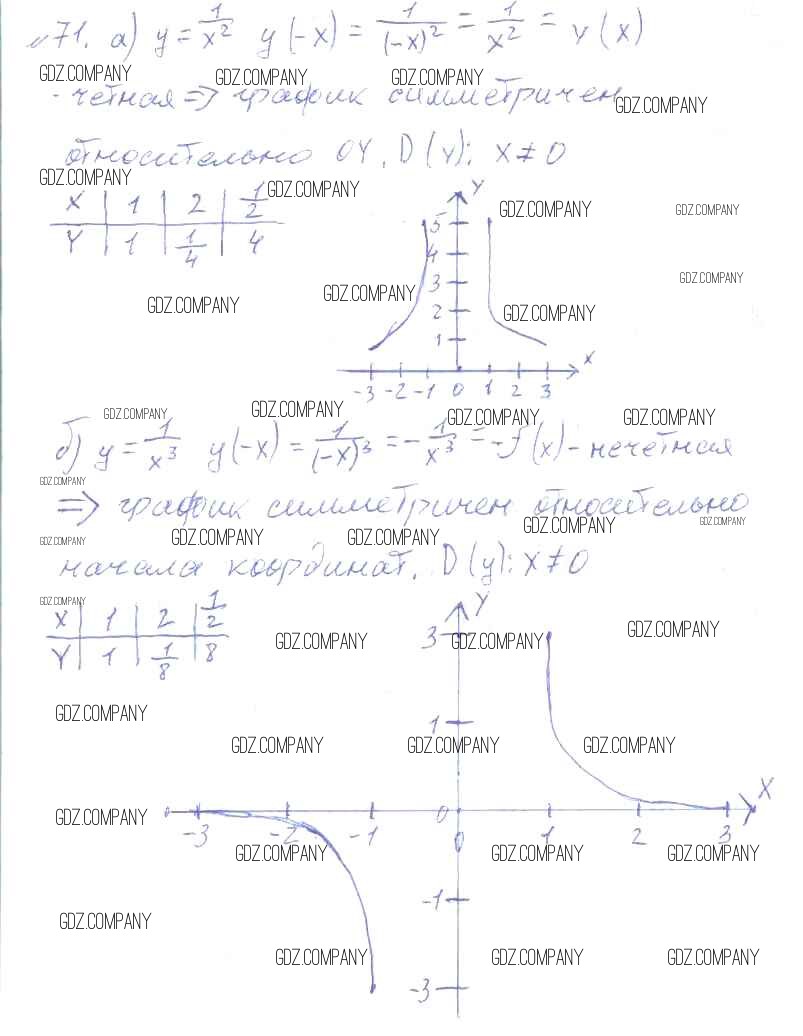 №71. а) y = 1/x² y(-x) = 1/(-x)² = 1/x² = y(x)
GDZ.COMPANY GDZ.COMPANY GDZ.COMPANY
- четная => график симметричен
GDZ.COMPANY
относительно OY, D(y): x ≠ 0
GDZ.COMPANY GDZ.COMPANY
X | 1 | 2 | 1/2
Y | 1 | 1/4 | 4
Y
GDZ.COMPANY GDZ.COMPANY
5
4
3
2
1
GDZ.COMPANY
GDZ.COMPANY GDZ.COMPANY GDZ.COMPANY
X
-3 -2 -1 0 1 2 3
GDZ.COMPANY GDZ.COMPANY GDZ.COMPANY GDZ.COMPANY
б) y = 1/x³ y(-x) = 1/(-x)³ = -1/x³ = -f(x) - нечетная
GDZ.COMPANY
=> график симметричен относительно
GDZ.COMPANY GDZ.COMPANY
GDZ.COMPANY GDZ.COMPANY GDZ.COMPANY
начала координат, D(y): x ≠ 0
GDZ.COMPANY
X | 1 | 2 | 1/2
Y | 1 | 1/8 | 8
Y
3
GDZ.COMPANY GDZ.COMPANY GDZ.COMPANY
GDZ.COMPANY
1
GDZ.COMPANY GDZ.COMPANY GDZ.COMPANY
X
GDZ.COMPANY
0
-3 -2 -1 0 1 2 3
GDZ.COMPANY GDZ.COMPANY GDZ.COMPANY
-1
GDZ.COMPANY
GDZ.COMPANY GDZ.COMPANY GDZ.COMPANY
-3